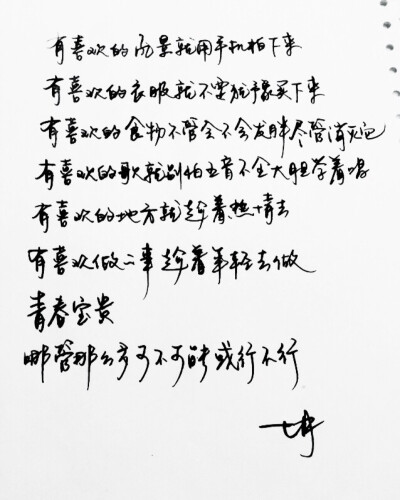 有喜欢的风景就用手机拍下来
有喜欢的衣服就不要犹豫买下来
有喜欢的食物不管会不会发胖尽管消灭它
有喜欢的歌就别怕五音不全大胆学着唱
有喜欢的地方就趁着热情去
有喜欢做的事趁着年轻去做
青春宝贵
哪管那么多可不可能或行不行